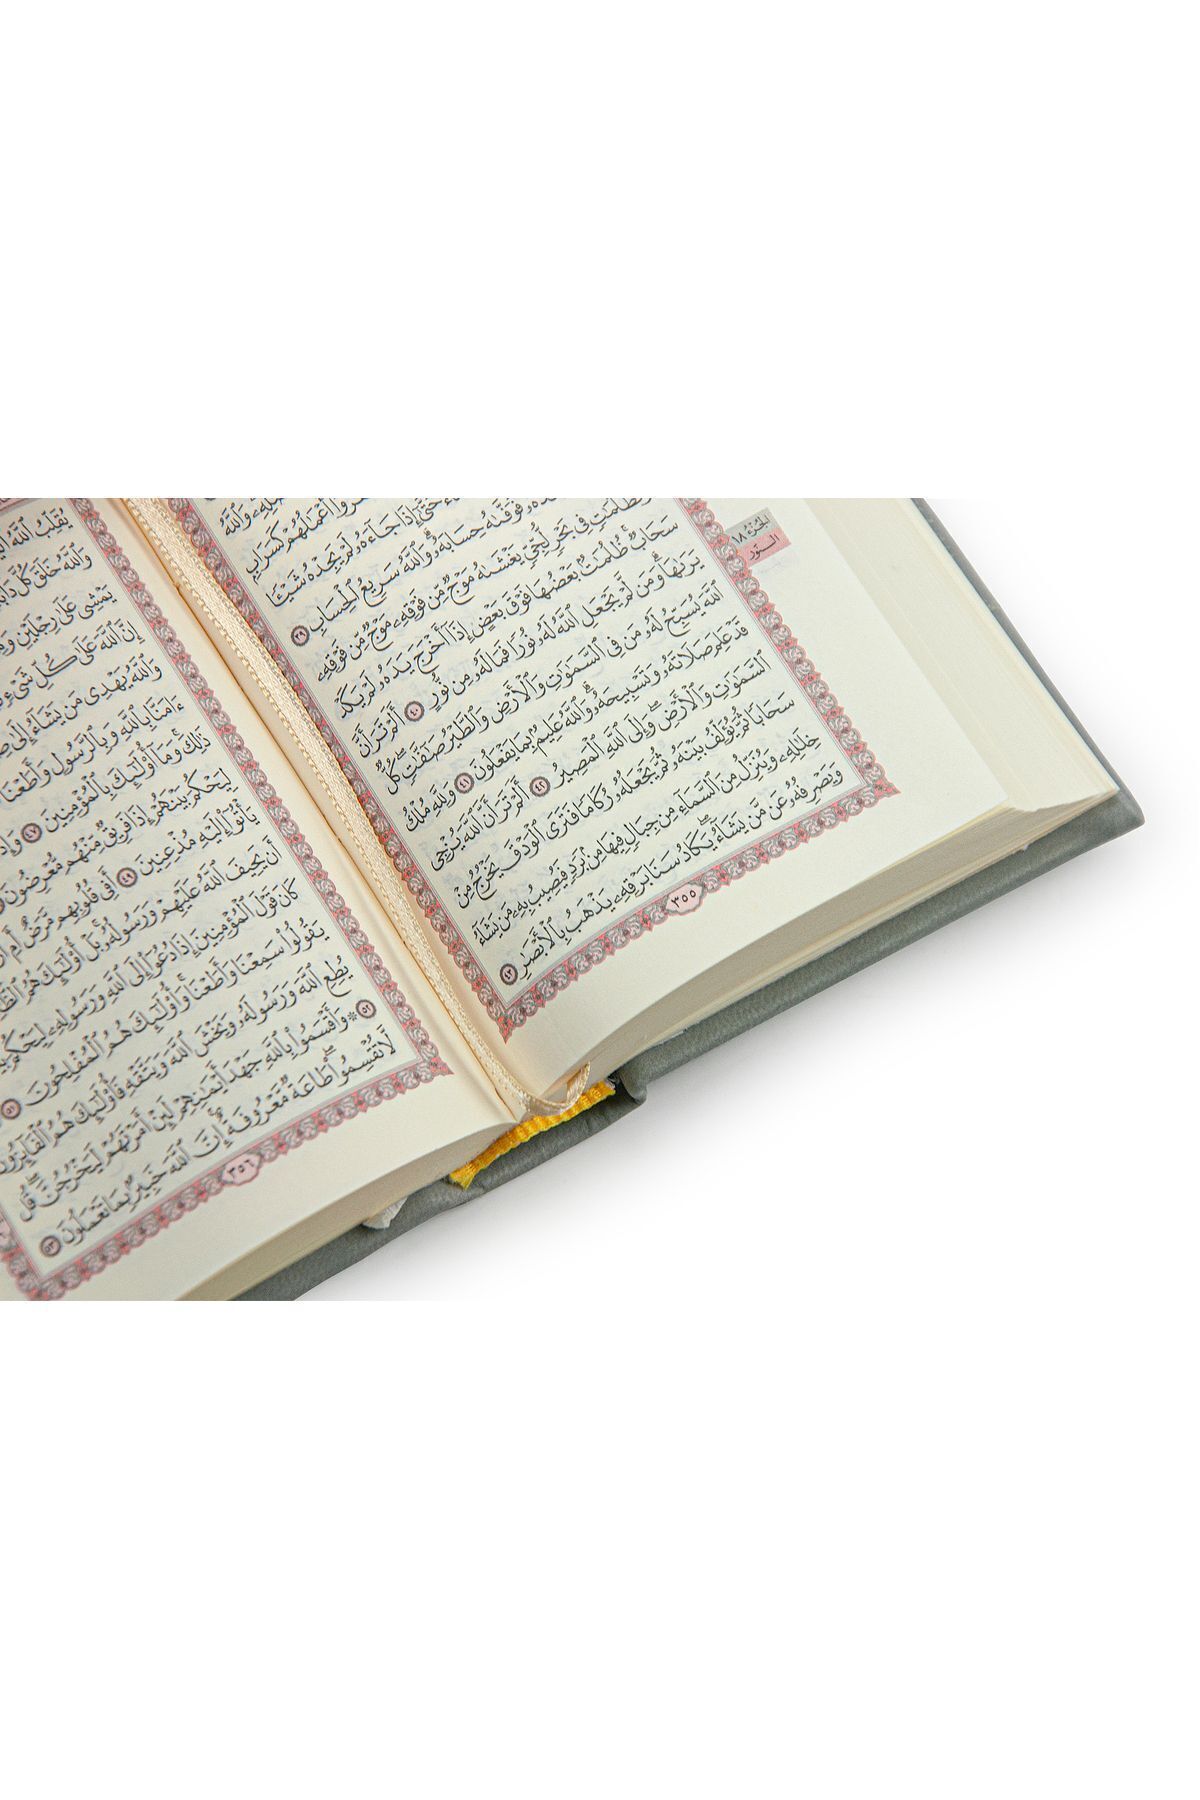 فَضْلِهِۦ وَٱللَّهُ
أَعْمَٰلُهُمْ كَسَرَابٍۭ
حَتَّىٰٓ إِذَا جَآءَهُۥ لَمْ يَجِدْهُ شَيْـًٔا
فَوَفَّىٰهُ حِسَابَهُۥ ۗ وَٱللَّهُ سَرِيعُ ٱلْحِسَابِ ٣٩
كَظُلُمَٰتٍ فِى بَحْرٍ لُّجِّىٍّ يَغْشَىٰهُ مَوْجٌ مِّن فَوْقِهِۦ مَوْجٌ مِّن فَوْقِهِۦ
سَحَابٌ ۚ ظُلُمَٰتٌۢ بَعْضُهَا فَوْقَ بَعْضٍ إِذَآ أَخْرَجَ يَدَهُۥ لَمْ يَكَدْ
يَرَىٰهَا ۗ وَمَن لَّمْ يَجْعَلِ ٱللَّهُ لَهُۥ نُورًا فَمَا لَهُۥ مِن نُّورٍ ٤٠ أَلَمْ تَرَ أَنَّ
ٱللَّهَ يُسَبِّحُ لَهُۥ مَن فِى ٱلسَّمَٰوَٰتِ وَٱلْأَرْضِ وَٱلطَّيْرُ صَٰٓفَّٰتٍ ۖ كُلٌّ
قَدْ عَلِمَ صَلَاتَهُۥ وَتَسْبِيحَهُۥ ۗ وَٱللَّهُ عَلِيمٌۢ بِمَا يَفْعَلُونَ ٤١ وَلِلَّهِ مُلْكُ
ٱلسَّمَٰوَٰتِ وَٱلْأَرْضِ ۖ وَإِلَى ٱللَّهِ ٱلْمَصِيرُ ٤٢ أَلَمْ تَرَ أَنَّ ٱللَّهَ يُزْجِى
سَحَابًا ثُمَّ يُؤَلِّفُ بَيْنَهُۥ ثُمَّ يَجْعَلُهُۥ رُكَامًا فَتَرَى ٱلْوَدْقَ يَخْرُجُ مِنْ
خِلَٰلِهِۦ وَيُنَزِّلُ مِنَ ٱلسَّمَآءِ مِن جِبَالٍ فِيهَا مِنۢ بَرَدٍ فَيُصِيبُ بِهِۦ مَن يَشَآءُ
وَيَصْرِفُهُۥ عَن مَّن يَشَآءُ ۖ يَكَادُ سَنَا بَرْقِهِۦ يَذْهَبُ بِٱلْأَبْصَٰرِ ٤٣
٣٥٥
الجزء ١٨
النور
يُقَلِّبُ ٱللَّهُ
وَٱللَّهُ خَلَقَ كُلَّ
يَمْشِى عَلَىٰ رِجْلَيْنِ
إِنَّ ٱللَّهَ عَلَىٰ كُلِّ شَىْءٍ
وَٱللَّهُ يَهْدِى مَن يَشَآءُ إِلَىٰ
ءَامَنَّا بِٱللَّهِ وَبِٱلرَّسُولِ وَأَطَعْنَا
ذَٰلِكَ ۚ وَمَآ أُو۟لَٰٓئِكَ بِٱلْمُؤْمِنِينَ ٤٧
لِيَحْكُمَ بَيْنَهُمْ إِذَا فَرِيقٌ مِّنْهُم مُّعْرِضُونَ
يَأْتُوٓا۟ إِلَيْهِ مُذْعِنِينَ ٤٩ أَفِى قُلُوبِهِم مَّرَضٌ أَمِ
أَن يَحِيفَ ٱللَّهُ عَلَيْهِمْ وَرَسُولُهُۥ ۚ بَلْ أُو۟لَٰٓئِكَ هُمُ
كَانَ قَوْلَ ٱلْمُؤْمِنِينَ إِذَا دُعُوٓا۟ إِلَى ٱللَّهِ وَرَسُولِهِۦ لِيَحْكُمَ
يَقُولُوا۟ سَمِعْنَا وَأَطَعْنَا ۚ وَأُو۟لَٰٓئِكَ هُمُ ٱلْمُفْلِحُونَ ٥١
يُطِعِ ٱللَّهَ وَرَسُولَهُۥ وَيَخْشَ ٱللَّهَ وَيَتَّقْهِ فَأُو۟لَٰٓئِكَ هُمُ ٱلْفَآئِزُونَ
٥٢ ۞ وَأَقْسَمُوا۟ بِٱللَّهِ جَهْدَ أَيْمَٰنِهِمْ لَئِنْ أَمَرْتَهُمْ لَيَخْرُجُنَّ ۖ قُل
لَّا تُقْسِمُوا۟ ۖ طَاعَةٌ مَّعْرُوفَةٌ ۚ إِنَّ ٱللَّهَ خَبِيرٌۢ بِمَا تَعْمَلُونَ ٥٣
٣٥٦